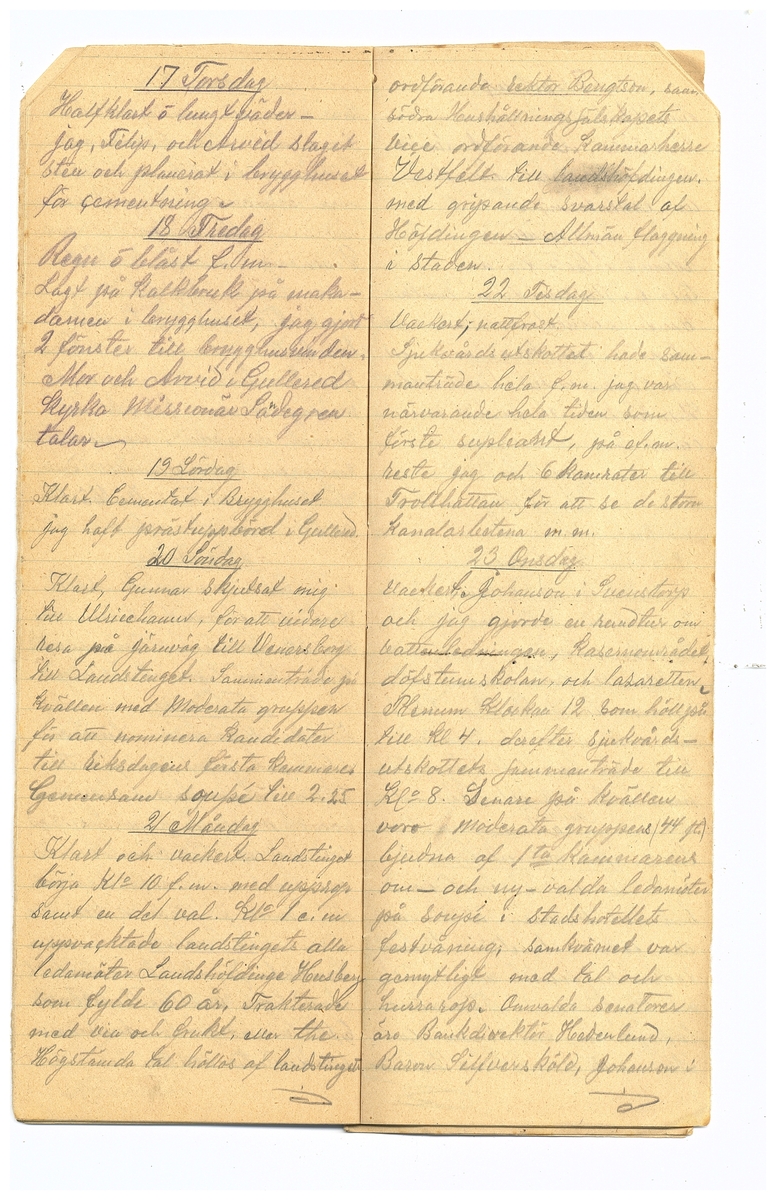 17 Torsdag
Halfklart ö lungt väder –
jag, Filip, och Arvid slagit
sten och planerat i brygghuset
för cementning.
18 Fredag
Regn ö blåst f.m –
Lagt på kalkbruk på maka-
damen i brygghuset, jag gjort
2 fönster till brygghusvinden.
Mor och Arvid i Gullered
kyrka Missionär
talar
19 Lördag
Klart. Cementat i Brygghuset
jag haft prästuppbörd i Gullered.
20 Söndag
Klart, Gunnar skjutsat mig
till Ulricehamn, för att vidare
resa på järnväg till Venersborg
till Landstinget. Sammenträde på
kvällen med Moderata gruppen
för att nominera kandidater
till Riksdagens första kammare
Gemensam soupé till 2.25
21 Måndag
Klart och vackert. Landstinget
börja Klo 10 f.m. med upprop
samt en del val. Klo 1 e.m
uppvacktade landstingets alla
ledamöter Landshöfdinge Husberg
som fylde 60 år. Trakterade
med vin och frukt, eller the.
Högstämda tal höllos af landstingets
ordförande rektor Bengtson, samt
södra Hushållningssälskapets
vice ordförande Kammarherre
Vestfelt till landshöfdingen.
med gripande svarstal af
Höfdingen – Allmän flaggning
i staden.
22 Tisdag
Vackert; nattfrost.
Sjukvårdsutskottet hade sam-
manträde hela f.m. jag var
närvarande hela tiden som
förste supleant, på ef.m.
reste jag och 6 kamrater till
Trollhättan för att se de stora
kanalarbetena m.m.
23 Onsdag
Vackert. Johanson i Svenstorp
och jag gjorde en rundtur om
vattenledningen, kasernområdet,
döfstumskolan, och lasaretten.
Plenum klockan 12 som höll på
till Kl 4. derefter sjukvårds-
utskottets sammanträde till
Klo 8. Senare på kvällen
voro Moderata gruppens (44 st)
bjudna af 1sta Kammarens
om- och ny-valda ledamöter
på soupé i stadshotellets
festvåning; samkvämet var
gemytligt med tal och
hurrarop. Omvalda senatorer
äro Bankdirektör Hedenlund,
Baron Silfversköld, Johanson i